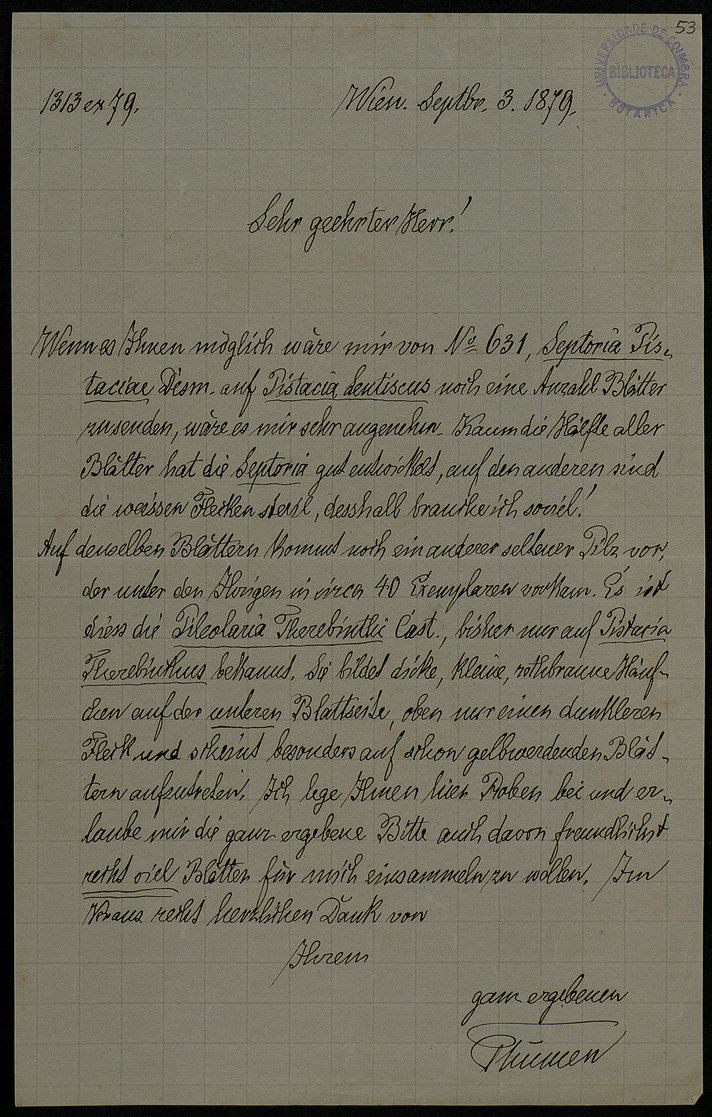 53
UNIVERSIDADE DE COIMBRA
BIBLIOTECA
BOTANICA
1313 ex 79.
Wien. Septbr. 3. 1879.
Sehr geehrter Herr!
Wenn es Ihnen möglich wäre mir von No 631, Septoria Pis-
taciae Desm. auf Pistacia Lentiscus noch eine Anzahl Blätter
zu senden, wäre es mir sehr angenehm. Kaum die Hälfte aller
Blätter hat die Septoria gut entwickelt, auf den anderen sind
die weissen Flecken steril, desshalb brauche ich soviel!
Auf denselben Blättern kommt noch ein anderer seltener Pilz vor,
der unter den Ihrigen in circa 40 Exemplaren vorkam. Es ist
diess die Pileolaria Therebinthi Cast., bisher nur auf Pistacia
Therebinthus bekannt. Sie bildet dicke, kleine, rothbraune Häuf-
chen auf der unteren Blattseite, oben nur einen dunkleren
Fleck und scheint besonders auf schon gelbwerdenden Blät-
tern aufzutreten. Ich lege Ihnen hier Proben bei und er-
laube mir die ganz ergebene Bitte auch davon freundlichst
recht viel Blätter für mich einsammeln zu wollen. Im
Voraus recht herzlichen Dank von
Ihrem
ganz ergebenen
Thümen